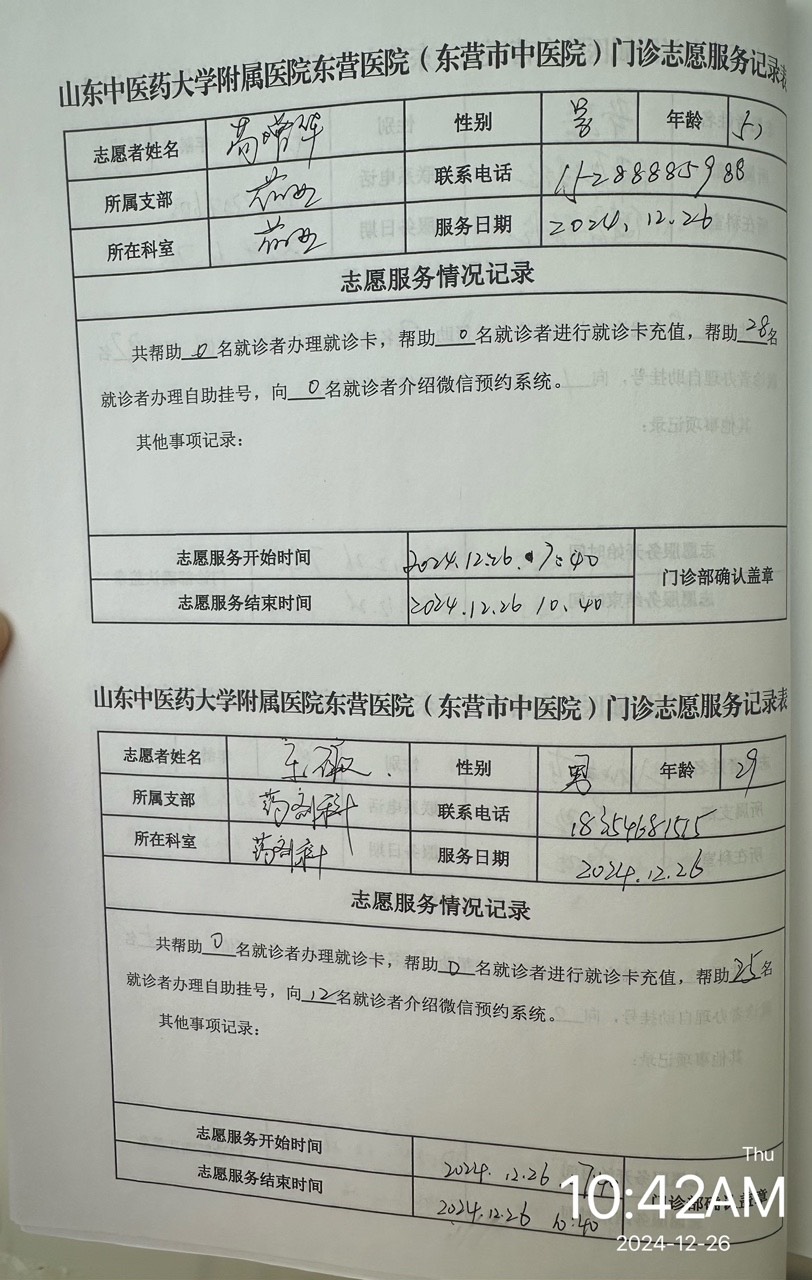 山东中医药大学附属医院东营医院（东营市中医院）门诊志愿服务记录表
志愿者姓名 性别 男 年龄
所属支部 联系电话
所在科室 服务日期 2024.12.26
志愿服务情况记录
共帮助 0 名就诊者办理就诊卡，帮助 0 名就诊者进行就诊卡充值，帮助 28 名
就诊者办理自助挂号，向 0 名就诊者介绍微信预约系统。
其他事项记录：
志愿服务开始时间 2024.12.26. 7:40
门诊部确认盖章
志愿服务结束时间 2024.12.26 10.40
山东中医药大学附属医院东营医院（东营市中医院）门诊志愿服务记录表
志愿者姓名 性别 男 年龄 29
所属支部 药剂科 联系电话 18354681515
所在科室 药剂科 服务日期 2024.12.26
志愿服务情况记录
共帮助 0 名就诊者办理就诊卡，帮助 0 名就诊者进行就诊卡充值，帮助 25 名
就诊者办理自助挂号，向 12 名就诊者介绍微信预约系统。
其他事项记录：
志愿服务开始时间 2024.12.26
门诊部确认盖章
志愿服务结束时间 2024.12.26 10:40
Thu
10:42AM
2024-12-26